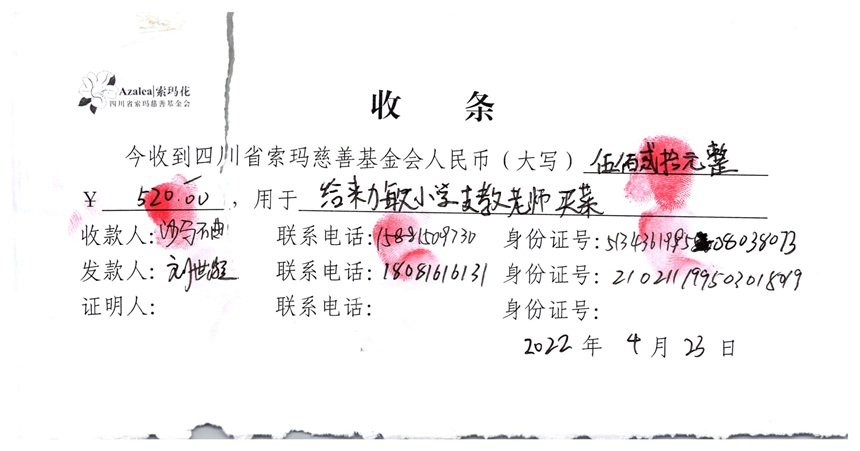 Azalea|索玛花
四川省索玛慈善基金会
收 条
今收到四川省索玛慈善基金会人民币（大写）伍佰贰拾元整
￥ 520.00 ，用于 给来力敏小学支教老师买菜
收款人：沙马不曲 联系电话：15881509730 身份证号：
发款人：刘世 联系电话：18081616131 身份证号：210211199503018019
证明人： 联系电话： 身份证号：
2022 年 4 月 23 日